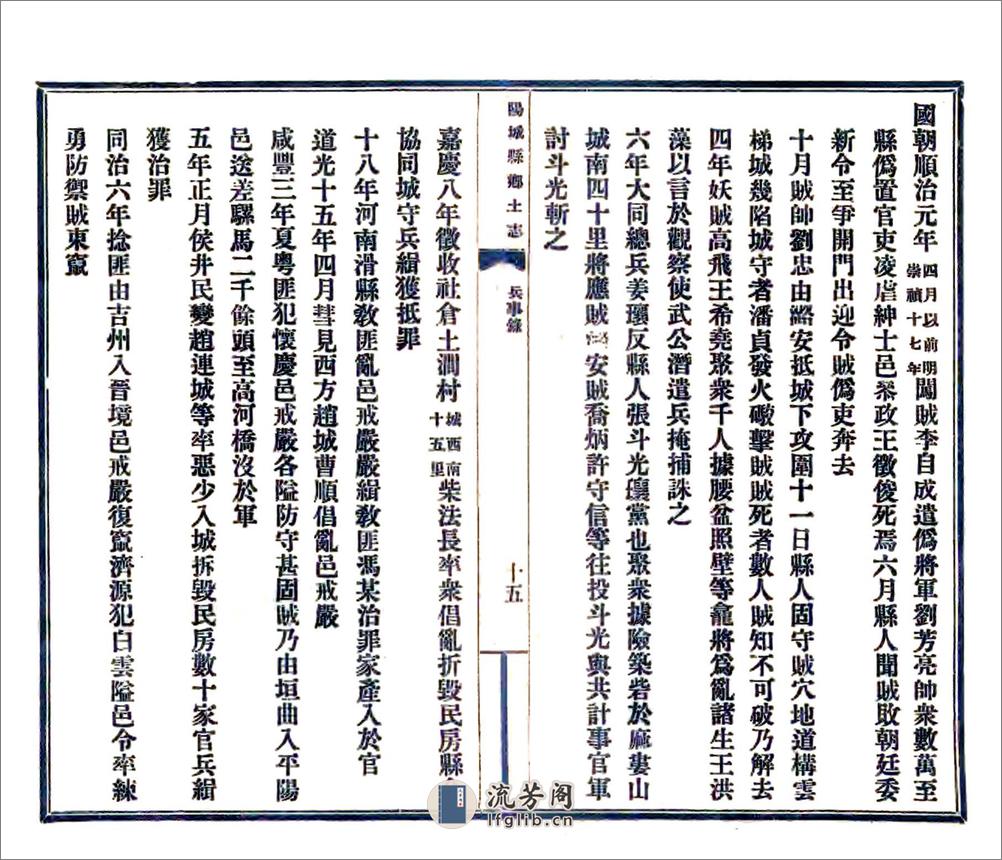 國朝順治元年四月以前明崇禎十七年闖賊李自成遣僞將軍劉芳亮帥衆數萬至
縣僞置官吏凌虐紳士邑叅政王徵俊死焉六月縣人聞賊敗朝廷委
新令至爭開門出迎令賊僞吏奔去
十月賊帥劉忠由潞安抵城下攻圍十一日縣人固守賊穴地道構雲
梯城幾陷城守者潘貞發火礮擊賊賊死者數人賊知不可破乃解去
四年妖賊高飛王希堯聚衆千人據腰盆照壁等龕將爲亂諸生王洪
藻以言於觀察使武公潛遣兵掩捕誅之
六年大同總兵姜瓖反縣人張斗光瓖黨也聚衆據險築砦於麻婁山
城南四十里將應賊安賊喬炳許守信等往投斗光與共計事官軍
討斗光斬之
陽城縣鄉土志
兵事錄
十五
嘉慶八年徵收社倉土澗村城西南十五里柴法長率衆倡亂折毀民房縣
協同城守兵緝獲抵罪
十八年河南滑縣敎匪亂邑戒嚴嚴緝敎匪馮某治罪家產入於官
道光十五年四月彗見西方趙城曹順倡亂邑戒嚴
咸豐三年夏粤匪犯懷慶邑戒嚴各隘防守甚固賊乃由垣曲入平陽
邑迻差騾馬二千餘頭至高河橋沒於軍
五年正月侯井民變趙連城等率惡少入城拆毀民房數十家官兵緝
獲治罪
同治六年捻匪由吉州入晉境邑戒嚴復竄濟源犯白雲隘邑令率練
勇防禦賊東竄
流芳阁
lfglib.cn